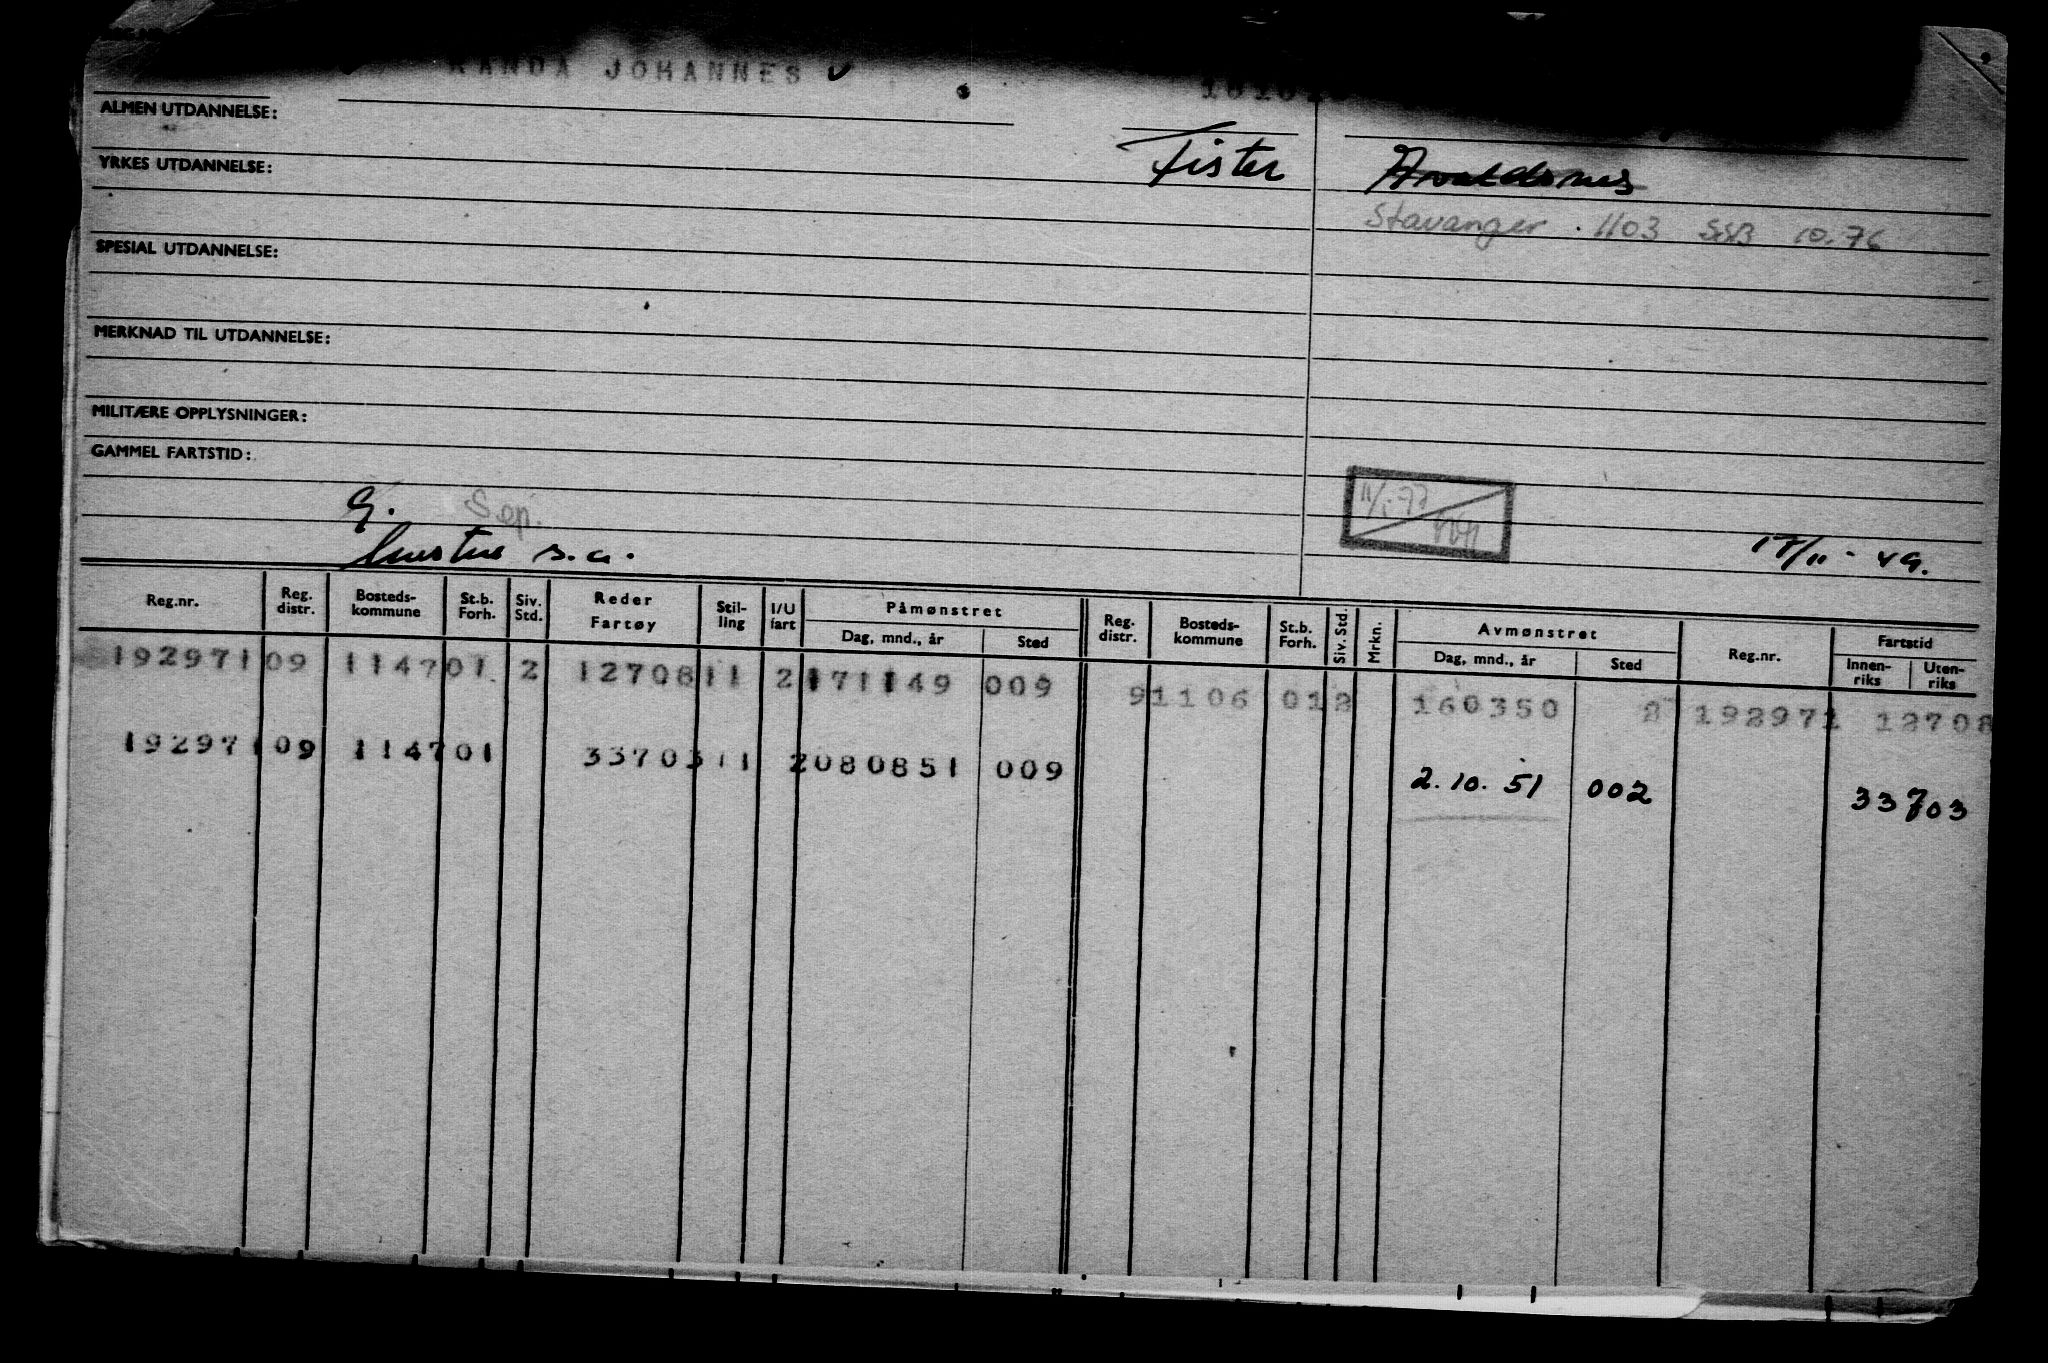 RANDA JOHANNES
ALMEN UTDANNELSE:
YRKES UTDANNELSE:
Fister
Stavanger . 1103 SSB 10.76
SPESIAL UTDANNELSE:
MERKNAD TIL UTDANNELSE:
MILITÆRE OPPLYSNINGER:
GAMMEL FARTSTID:
g. Sep.
s.a.
17/11 - 49.
Reg.nr. Reg. distr. Bosteds-kommune St.b. Forh. Siv. Std. Reder Fartøy Stil-ling I/U fart Påmønstret Dag, mnd., år Sted Reg. distr. Bosteds-kommune St.b. Forh. Siv. Std. Mrkn. Avmønstret Dag, mnd., år Sted Reg.nr. Fartstid Innen-riks Uten-riks
192971 09 1147 01 2 12708 11 2 171149 009 9 1106 01 2 160350 2 192971 12708
192971 09 1147 01 33703 11 2 080851 009 2.10.51 002 33703